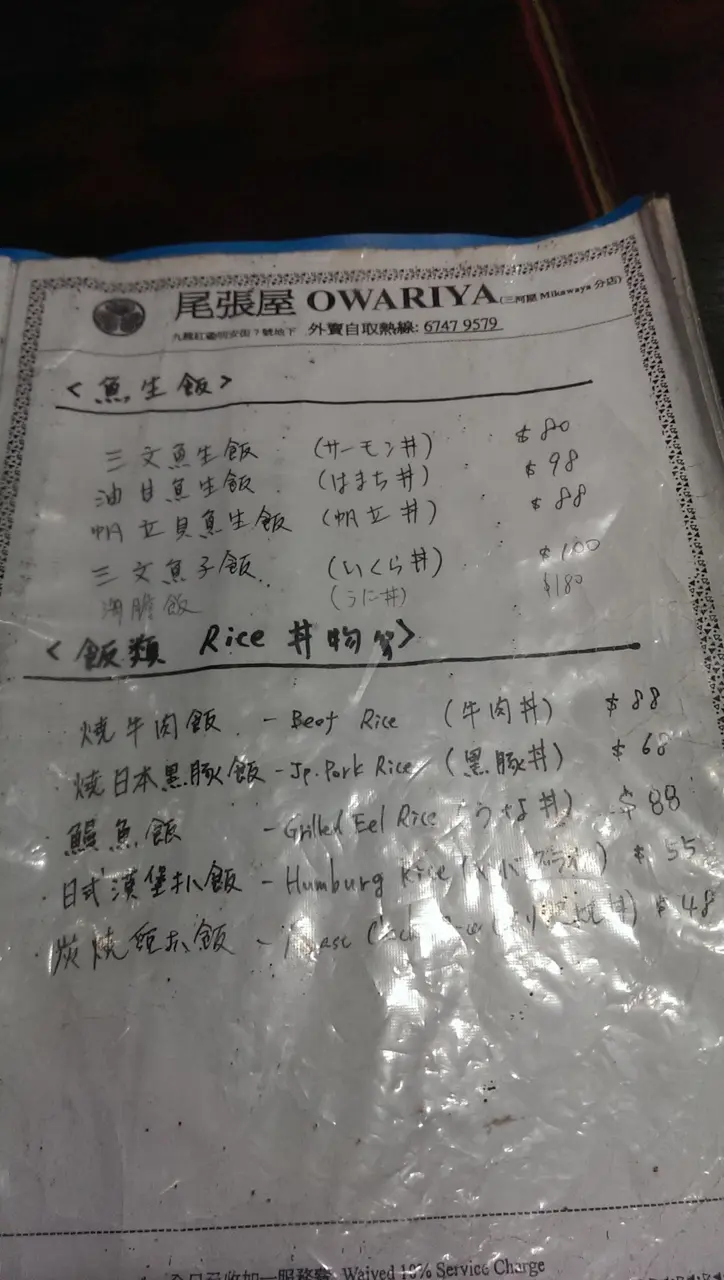 尾張屋 OWARIYA (三河屋 Mikawaya 分店)
九龍紅磡明安街7號地下 外賣自取熱線: 6747 9579
<魚生飯>
三文魚生飯 (サーモン丼) $80
油甘魚生飯 (はまち丼) $98
帆立貝魚生飯 (帆立丼) $88
三文魚子飯 (いくら丼) $100
海膽飯 (うに丼) $180
<飯類 Rice 丼物等>
燒牛肉飯 - Beef Rice (牛肉丼) $88
燒日本黑豚飯 - Jp. Pork Rice (黒豚丼) $68
鰻魚飯 - Grilled Eel Rice (うな丼) $88
日式漢堡扒飯 - Humburg Rice $55
炭燒雞扒飯 - $48
Waived 10% Service Charge